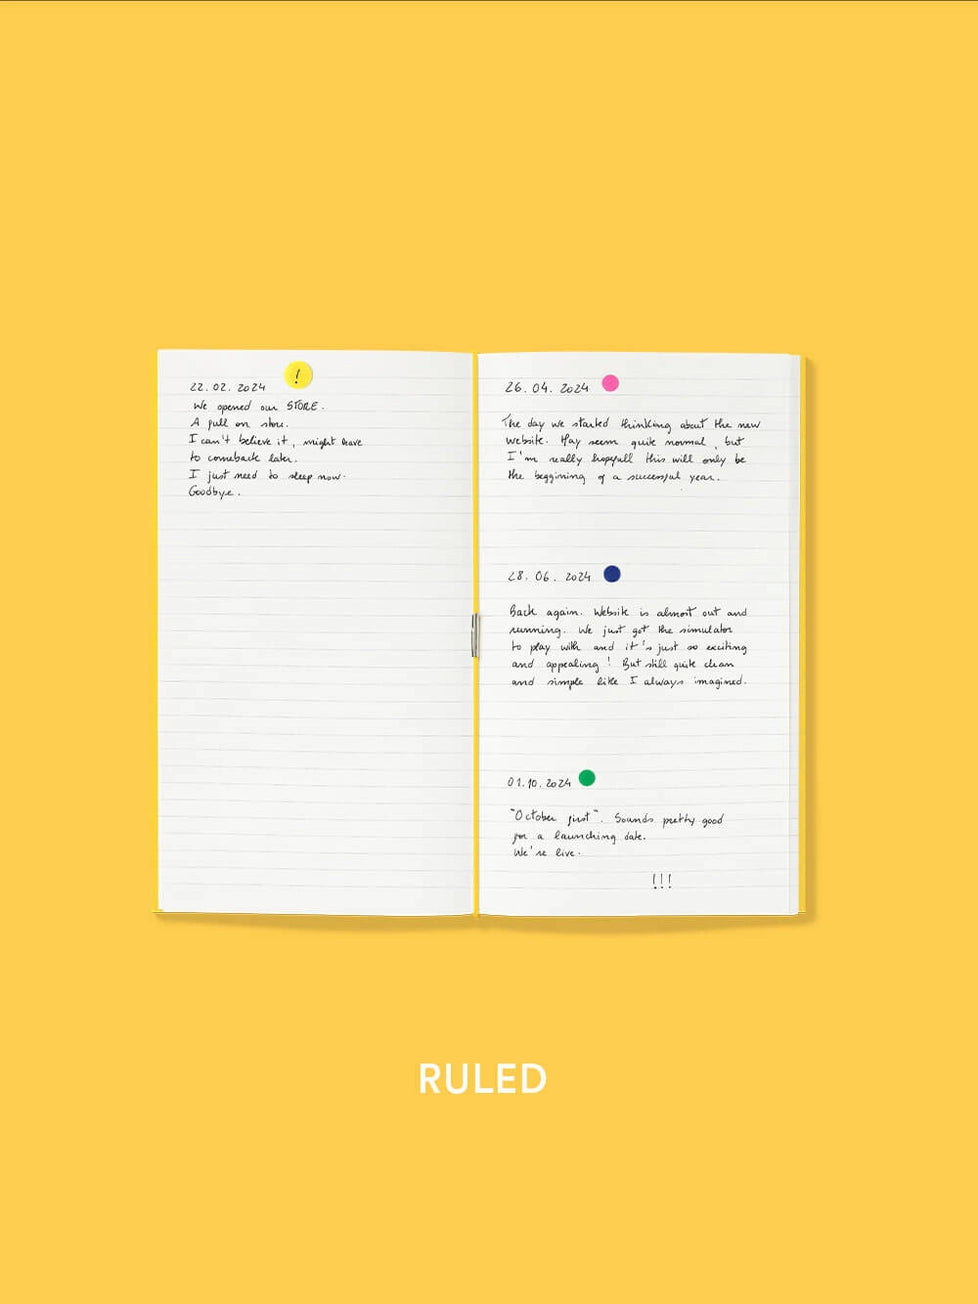 22.02.2024
!
We opened our STORE.
A full on store.
I can't believe it, might leave
to comeback later.
I just need to sleep now.
Goodbye.
26.04.2024
The day we started thinking about the new
website. May seem quite normal, but
I'm really hopefull this will only be
the beggining of a successful year.
28.06.2024
Back again. Website is almost out and
running. We just got the simulator
to play with and it's just so exciting
and appealing! But still quite clean
and simple like I always imagined.
01.10.2024
"October first". Sounds pretty good
for a launching date.
We're live.
!!!
RULED